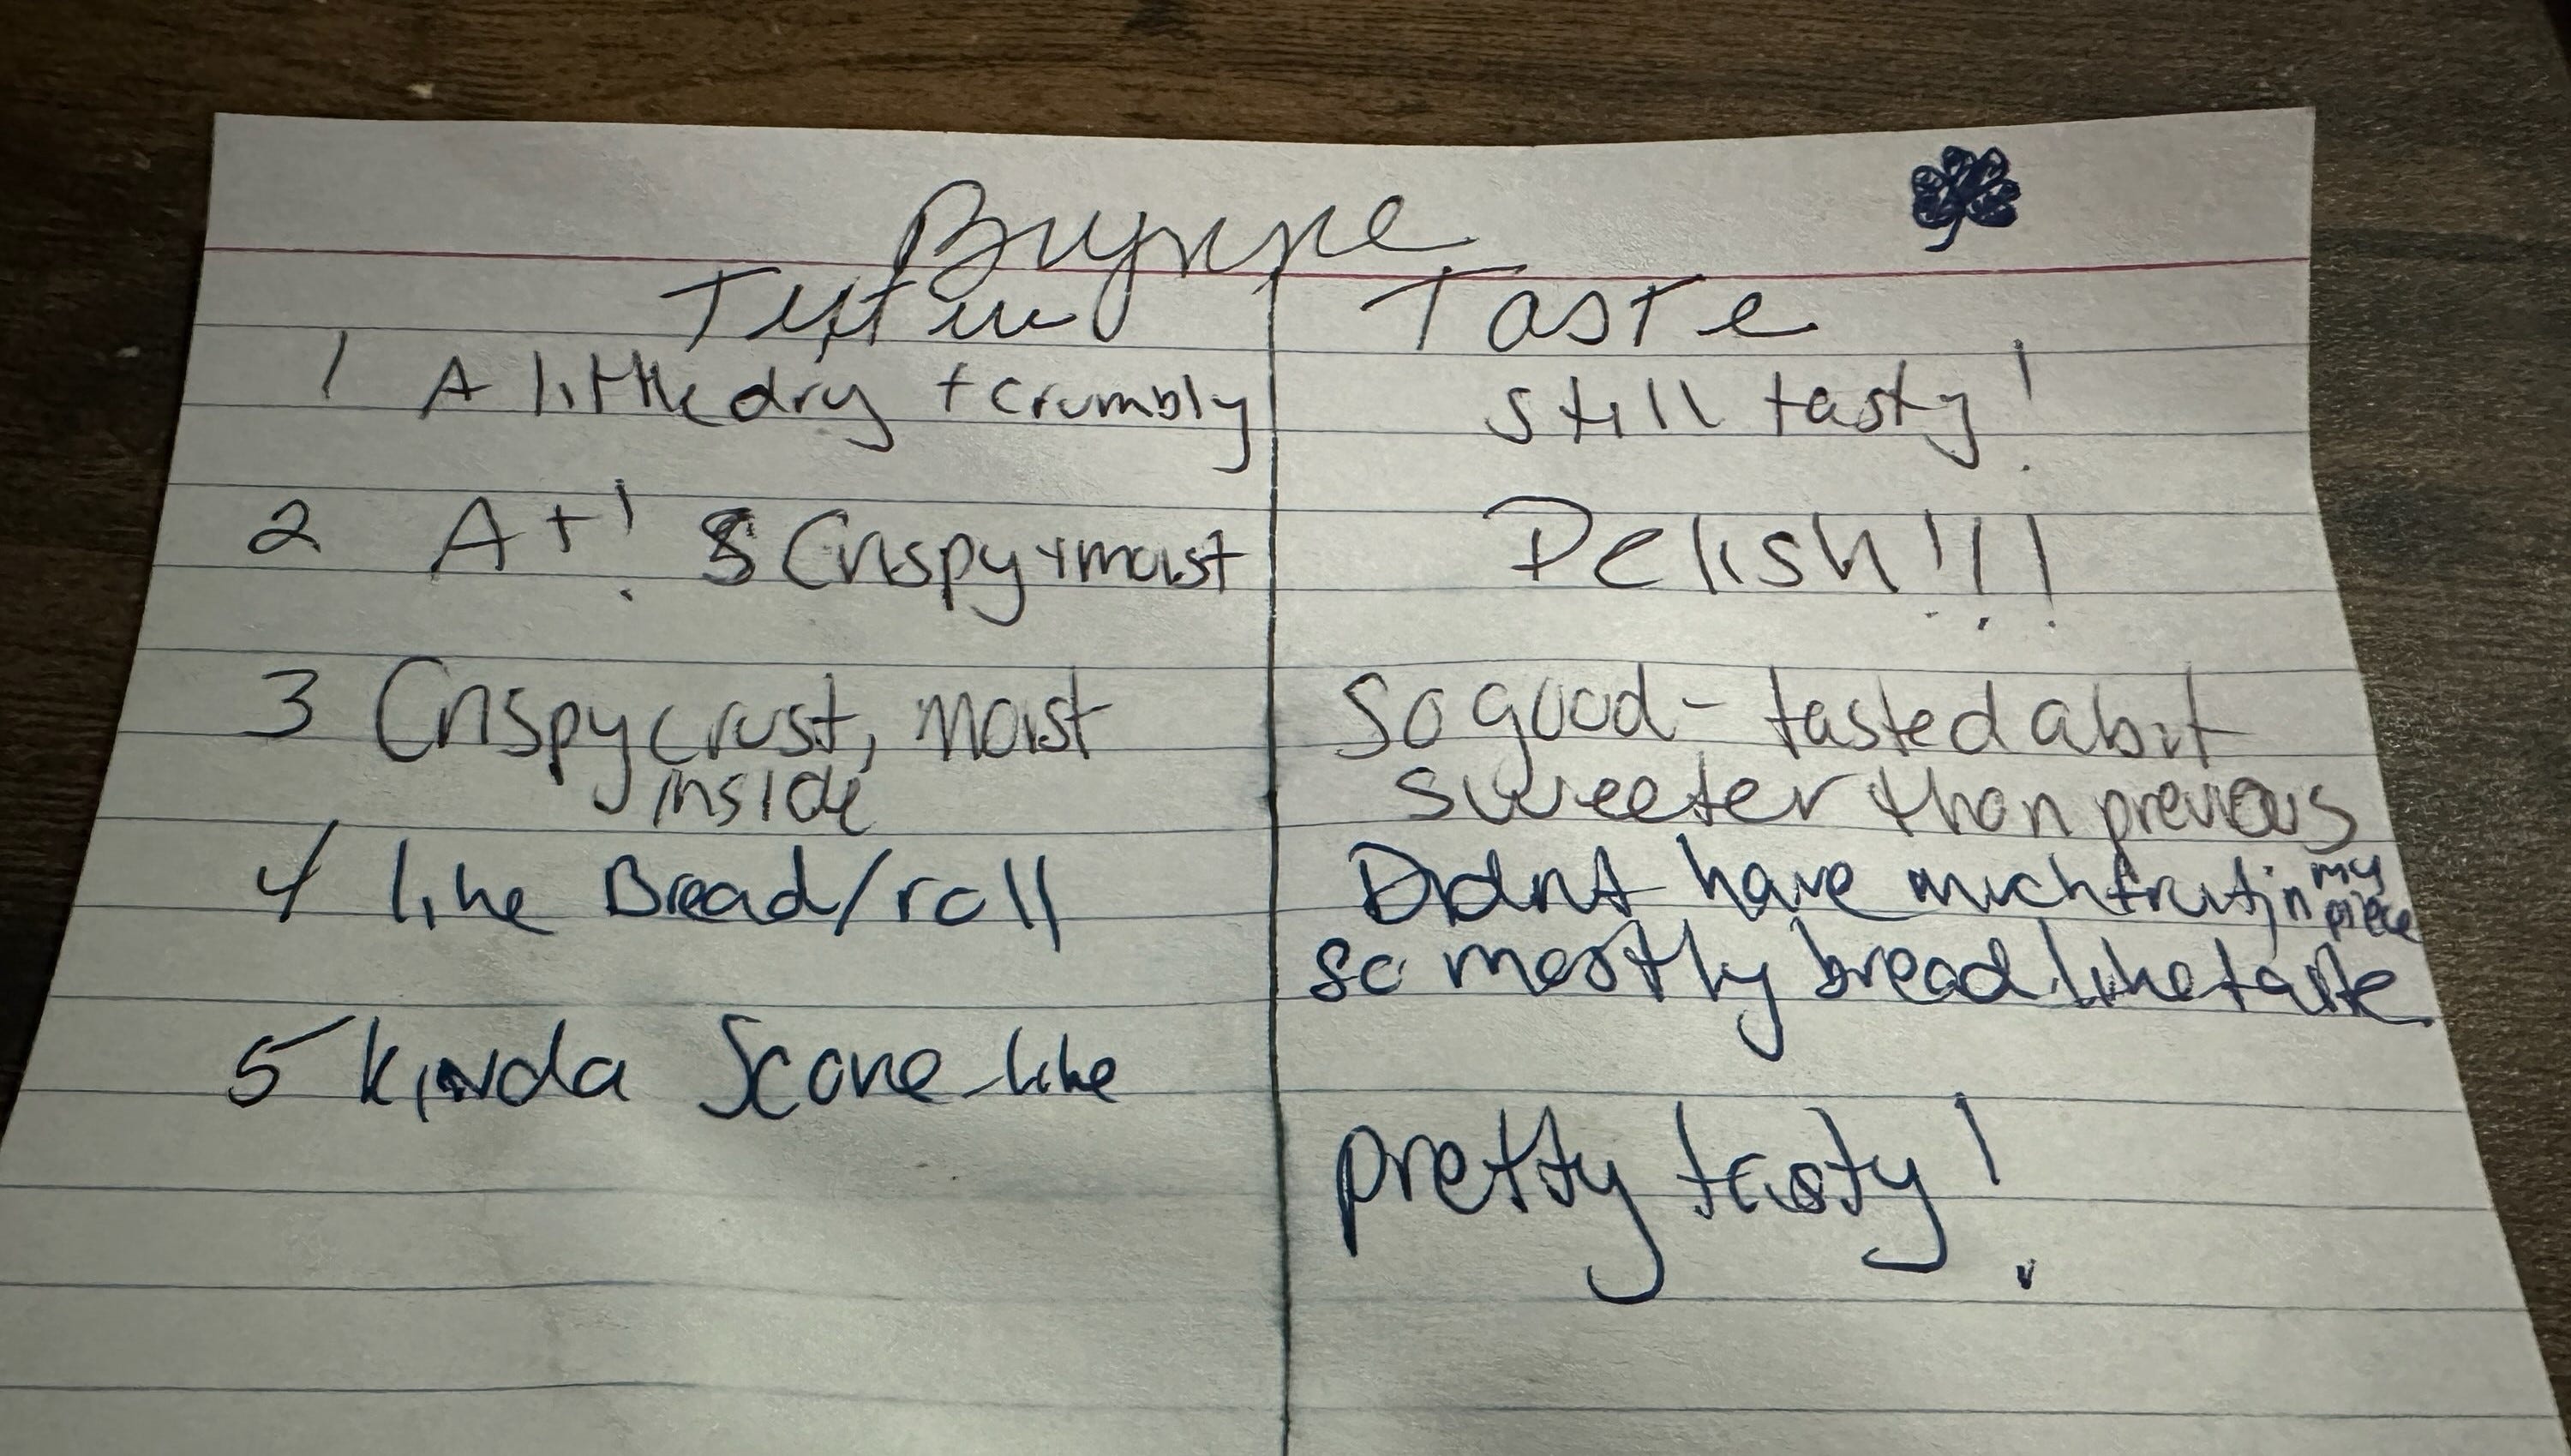 Brynne
Texture Taste
1 A little dry + crumbly still tasty!
2 A+! Crispy + moist Delish!!!
3 Crispy crust, moist So good - tasted a bit
inside sweeter than previous
4 like Bread/roll Didn't have much fruit in my piece
so mostly bread like taste
5 kinda Scone-like
pretty tasty!